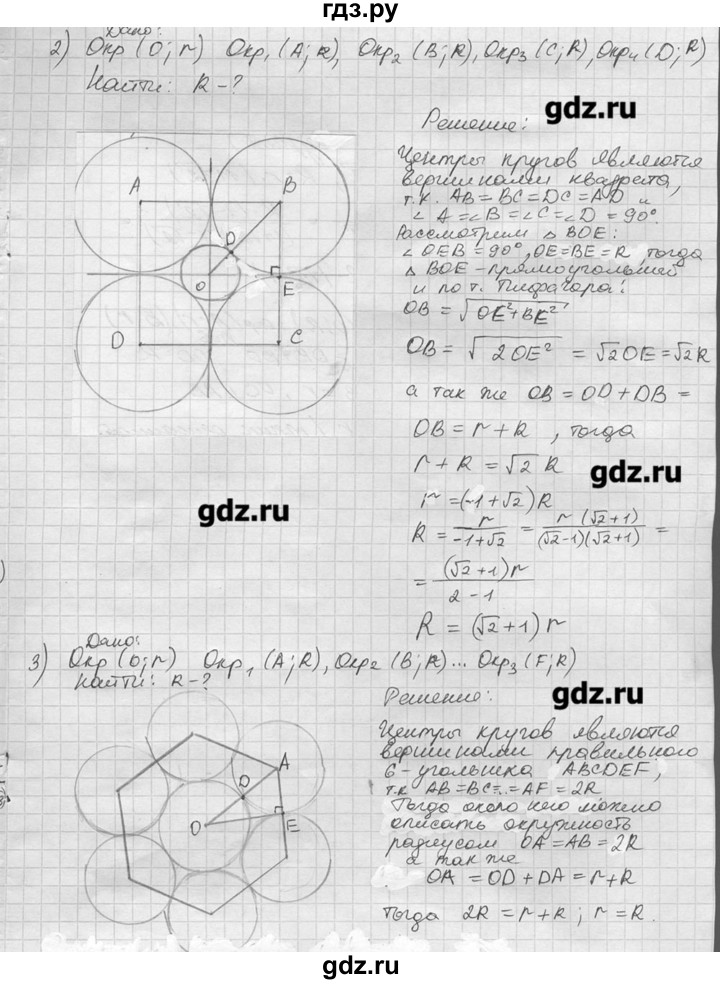 гдз.ру
Дано:
2) Окр (O; r) Окр₁ (A; R), Окр₂ (B; R), Окр₃ (C; R), Окр₄ (D; R)
Найти: R - ?
gdz.ru
Решение:
Центры кругов являются
вершинами квадрата,
т.к. AB = BC = DC = AD и
∠A = ∠B = ∠C = ∠D = 90°.
Рассмотрим △ BOE:
∠OEB = 90°, OE = BE = R, тогда
△ BOE - прямоугольный
и по т. Пифагора:
OB = √OE² + BE²
OB = √2OE² = √2OE = √2R
а так же OB = OD + DB =
OB = r + R , тогда
r + R = √2 R
gdz.ru
r = (-1 + √2) R
R = r/(-1+√2) = r(√2+1)/((√2-1)(√2+1)) =
= (√2+1)r/(2-1)
R = (√2+1) r
A B
D
O
E
D C
gdz.ru
)
Дано:
3) Окр (O; r) Окр₁ (A; R), Окр₂ (B; R)... Окр₃ (F; R)
Найти: R - ?
Решение:
gdz.ru
Центры кругов являются
вершинами правильного
6-угольника ABCDEF,
т.к AB = BC = .. = AF = 2R
Тогда около него можно
описать окружность
радиусом OA = AB = 2R
а так же
OA = OD + DA = r + R
Тогда 2R = r + R ; r = R.
A
D
O
E
gdz.ru